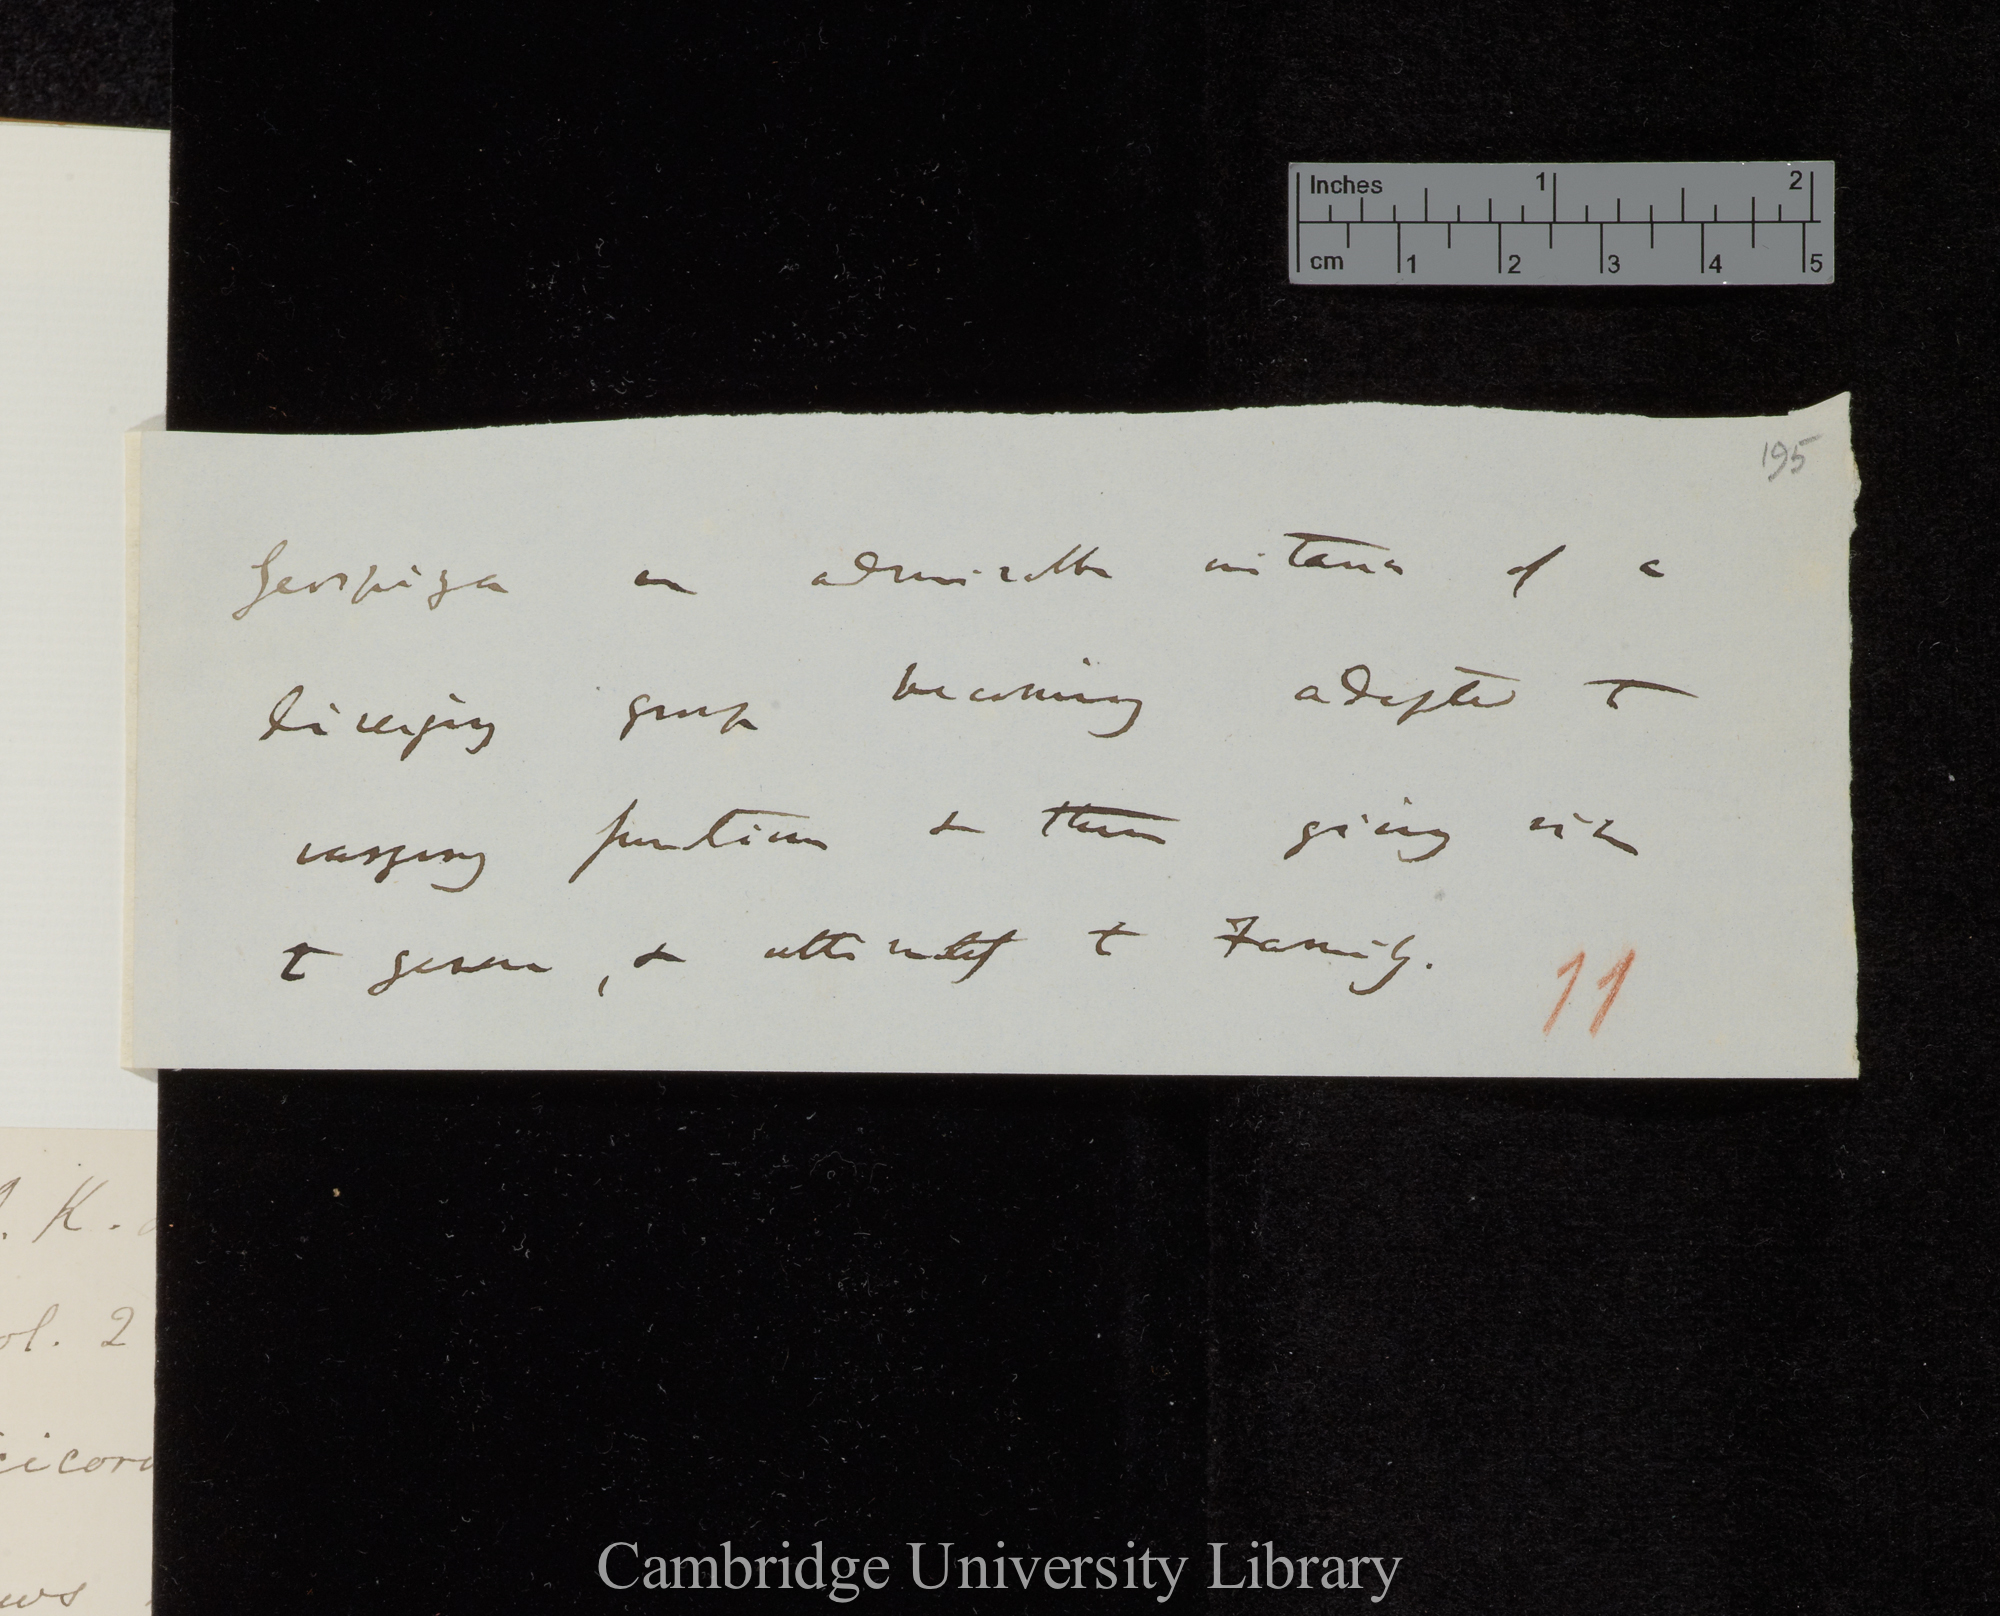 195
Geospiza an admirable instance of a
diverging group becoming adapted to
varying functions & then giving rise
to genera, & ultimately to Family.
11
Inches 1 2
cm 1 2 3 4 5
K.
ol. 2
cicorn
Cambridge University Library